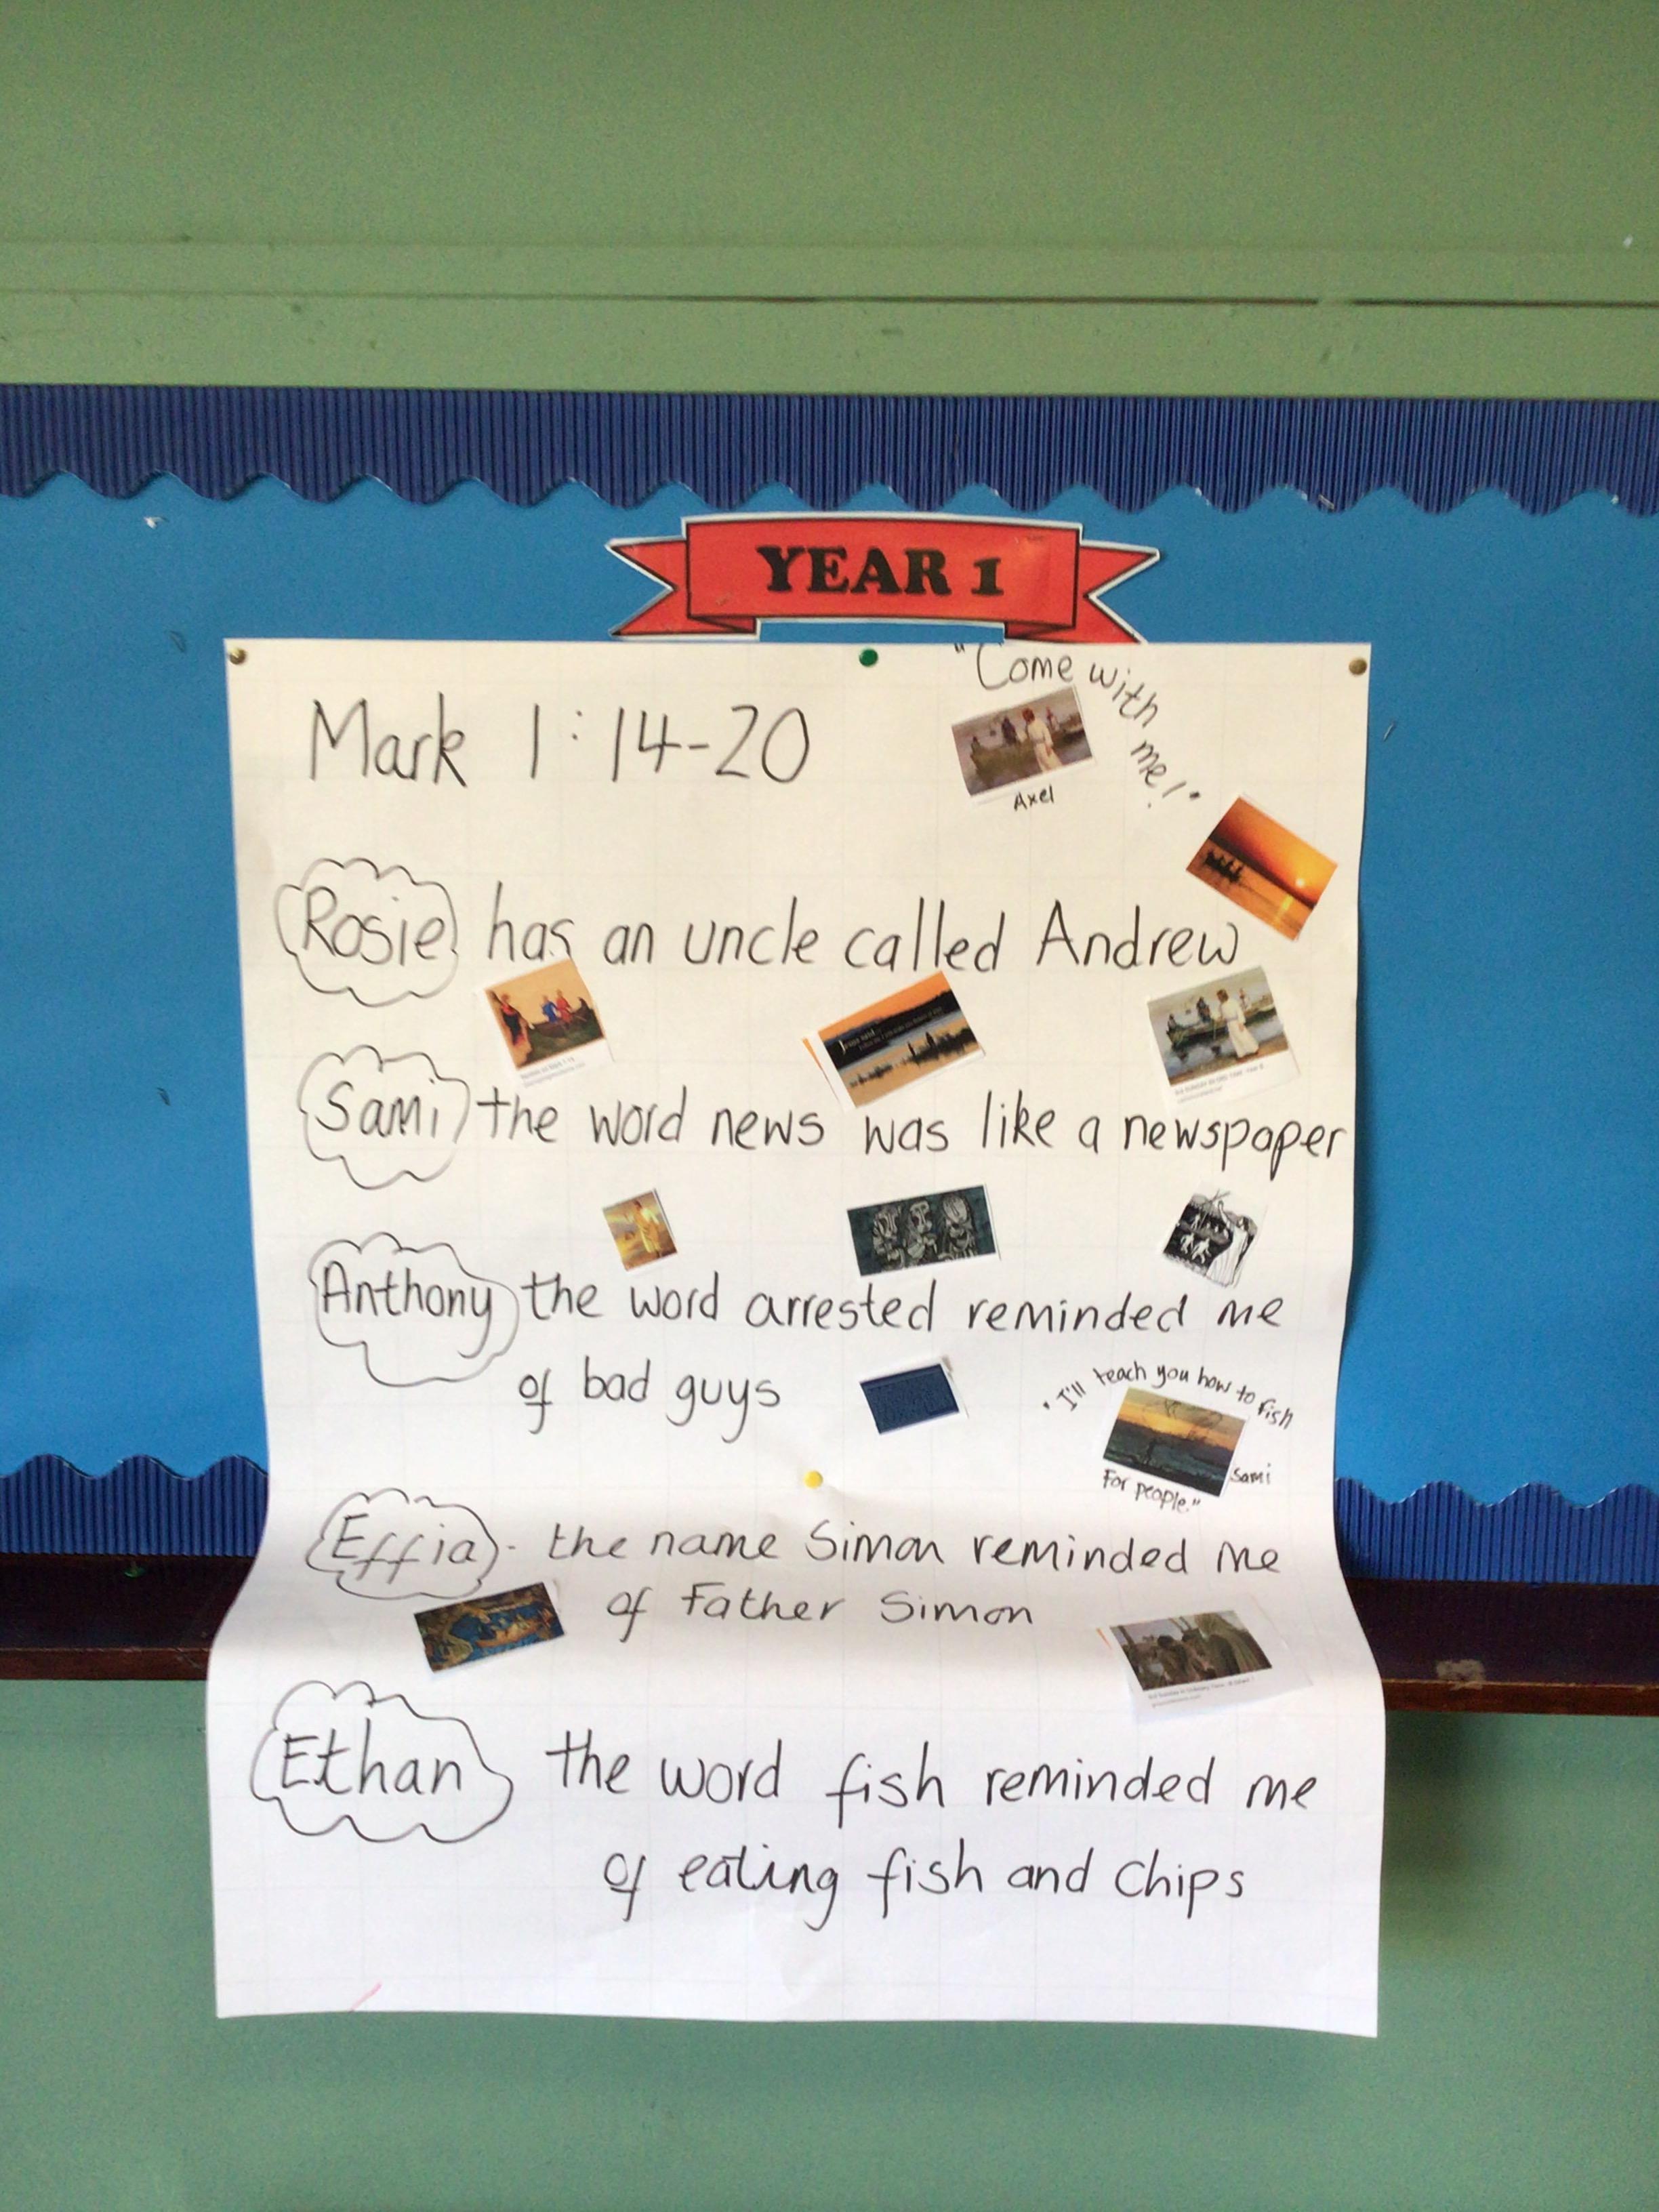 YEAR 1
"Come with me!"
Mark 1:14-20
Axel
Rosie has an uncle called Andrew
Jesus said...
Sami the word news was like a newspaper
Anthony the word arrested reminded me
of bad guys
"I'll teach you how to fish
Sami
For people."
Effia - the name Simon reminded me
of Father Simon
Ethan the word fish reminded me
of eating fish and chips